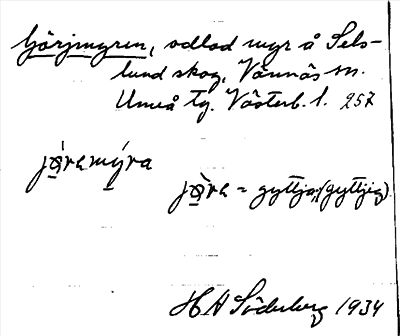 Görjmyren, odlad myr å Sels-
lund skog, Vännäs sn.
Umeå tg. Västerb. l. 257
jø̀remýra
jø̀re = gyttja, (gyttjig)
H A Söderberg 1934